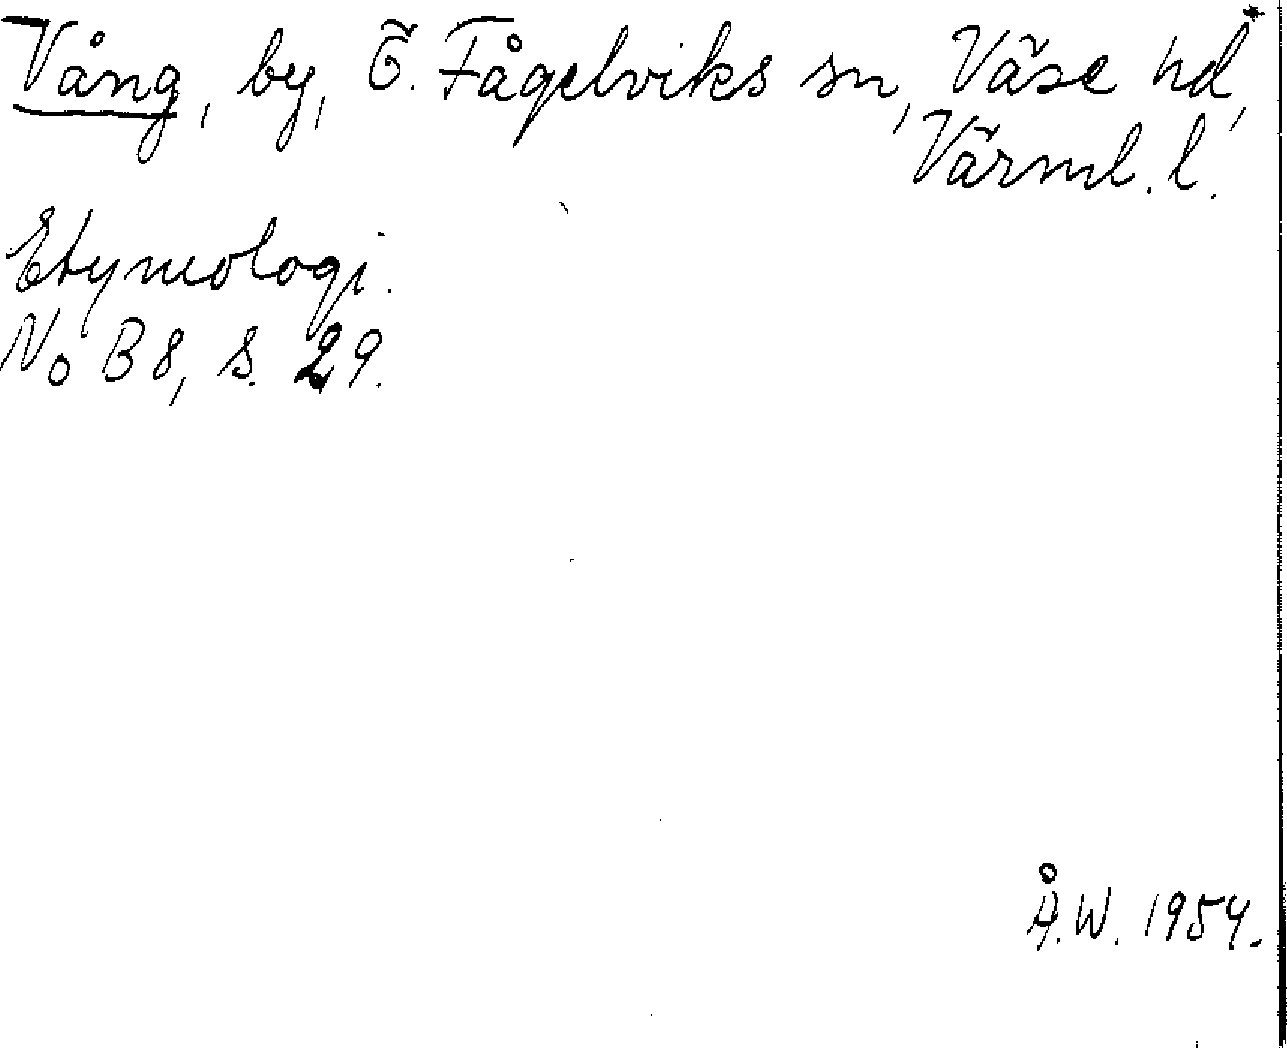 Vång, by, Ö. Fågelviks sn, Väse hd,
Värml. l.
Etymologi.
No B 8, s. 29.
Å.W. 1954.